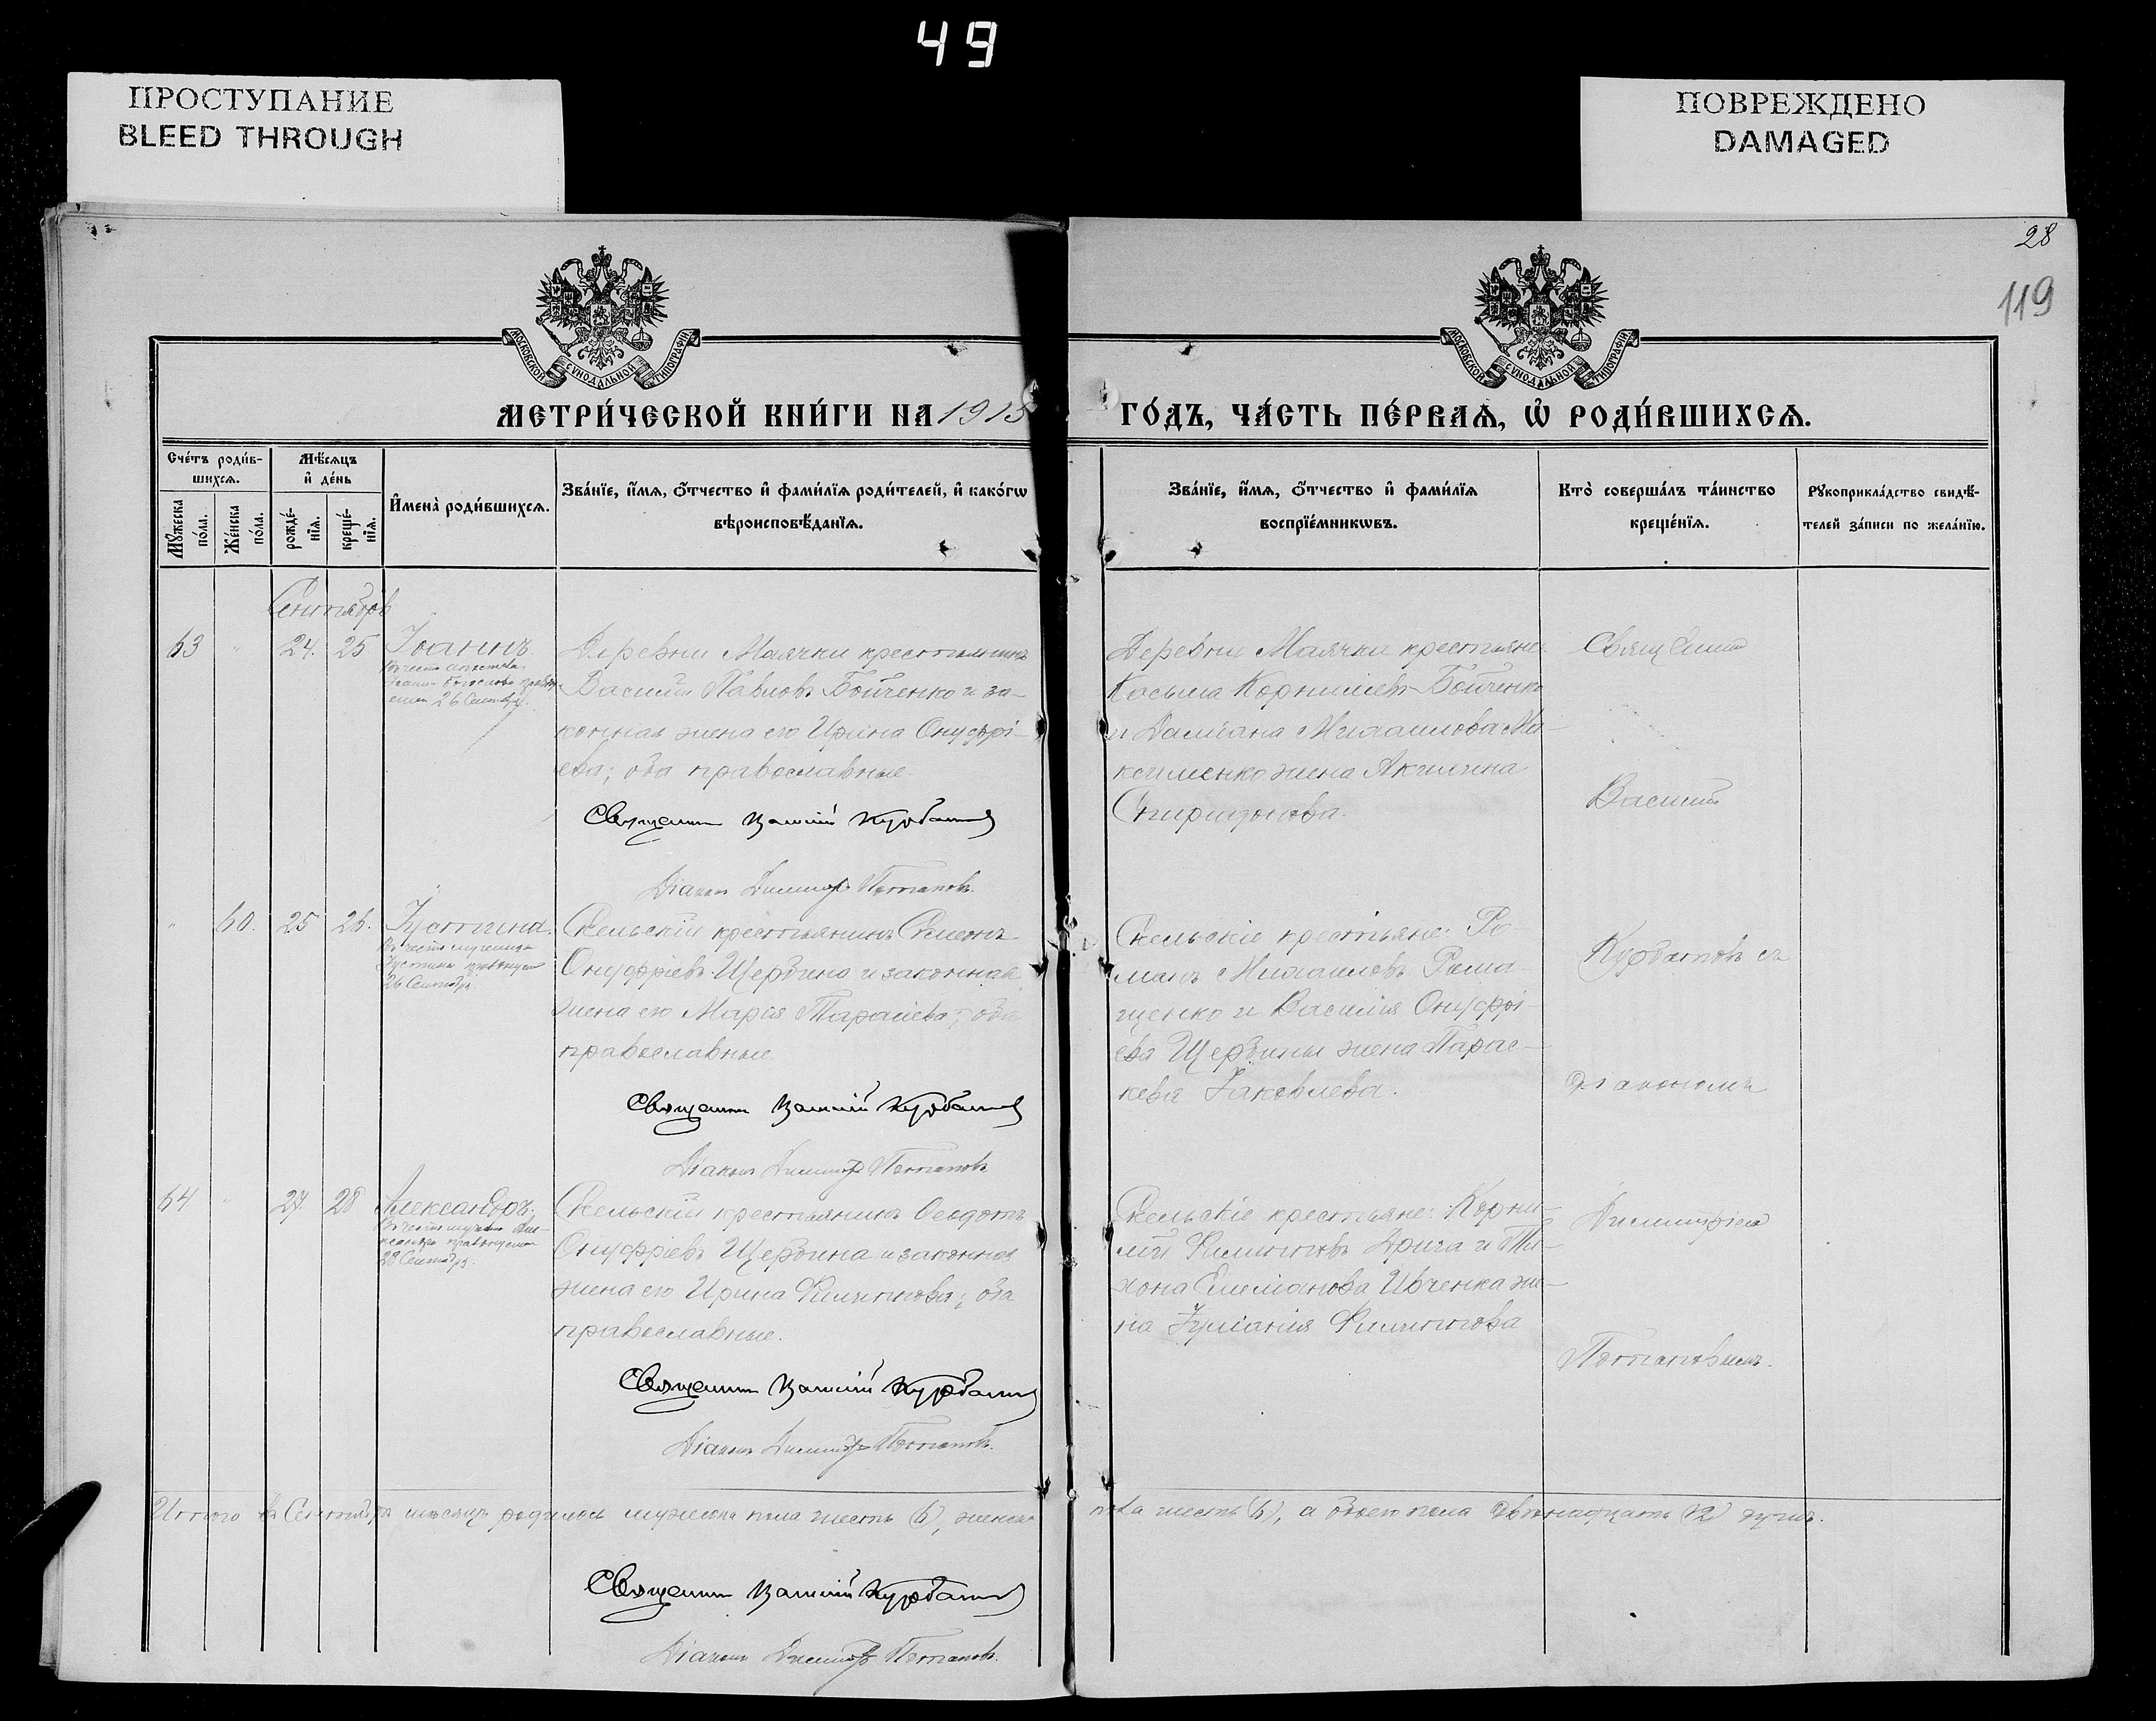 49
ПРОСТУПАНИЕ
BLEED THROUGH
ПОВРЕЖДЕНО
DAMAGED
28
119
МОСКОВСКОЙ СѴНОДАЛЬНОЙ ТИПОГРАФІИ
МОСКОВСКОЙ СѴНОДАЛЬНОЙ ТИПОГРАФІИ
МЕТРИ́ЧЕСКОЙ КНИ́ГИ НА 1915 ГО́ДЪ, ЧА́СТЬ ПЕ́РВАѦ, Ѡ҆ РОДИ́ВШИХСѦ.
Сче́тъ роди́в-
шихсѧ.
Мꙋ́жеска по́ла.
Же́нска по́ла.
Мѣ́сѧцъ
и҆ де́нь
рожде́-
нїѧ.
креще́-
нїѧ.
И҆мена̀ роди́вшихсѧ.
Зва́нїе, и҆́мѧ, ѻ҆́тчество и҆ фами́лїѧ роди́телей, и҆ како́гѡ
вѣроисповѣ́данїѧ.
Зва́нїе, и҆́мѧ, ѻ҆́тчество и҆ фами́лїѧ
воспрїе́мникѡвъ.
Кто̀ соверша́лъ та́инство
креще́нїѧ.
Рꙋкоприкла́дство свидѣ́-
телей за́писи по жела́нїю.
Сентябрь
63 " 24. 25 Іоаннъ
Въ честь апостола
Іоанна Богослова праздн.
26 Сентября.
Деревни Маячки крестьянинъ
Василій Павловъ Бойченко и за-
конная жена его Ирина Онуфрі-
ева; оба православные.
Священникъ Василій Курбатовъ
Діаконъ Димитрій Потаповъ.
Деревни Маячки крестьяне:
Косьма Корниліевъ Бойченко
и Даміана Михаилова Ма-
ксименко жена Акилина
Спиридонова.
Священник
Василій
" 60. 25 26. Іустина.
Въ честь мученицы
Іустины празднуемой
26 Сентября.
Скельскій крестьянинъ Симеонъ
Онуфріевъ Щербина и законная
жена его Марія Тарасіева; оба
православные
Священникъ Василій Курбатовъ
Діаконъ Димитрій Потаповъ
Скельскіе крестьяне: Ро-
манъ Михаиловъ Рома-
щенко и Василія Онуфрі-
ева Щербины жена Парас-
кева Іаковлева.
Курбатовъ съ
діакономъ
64 " 27. 28 Александръ.
Въ честь мученика Але-
ксандра празднуемаго
28 Сентября.
Скельскій крестьянинъ Ѳеодотъ
Онуфріевъ Щербина и законная
жена его Ирина Филиппова; оба
православные.
Священникъ Василій Курбатовъ
Діаконъ Димитрій Потаповъ.
Скельскіе крестьяне: Корни-
лій Филипповъ Дрига и Ти-
хона Ивченка же-
на Іуліанія Филиппова
Димитріемъ
Потаповымъ.
Итого въ Сентябрѣ мѣсяцѣ родилось мужеска пола шесть (6), женска пола шесть (6), а обоего пола двѣнадцать (12) душъ.
Священникъ Василій Курбатовъ
Діаконъ Димитрій Потаповъ.